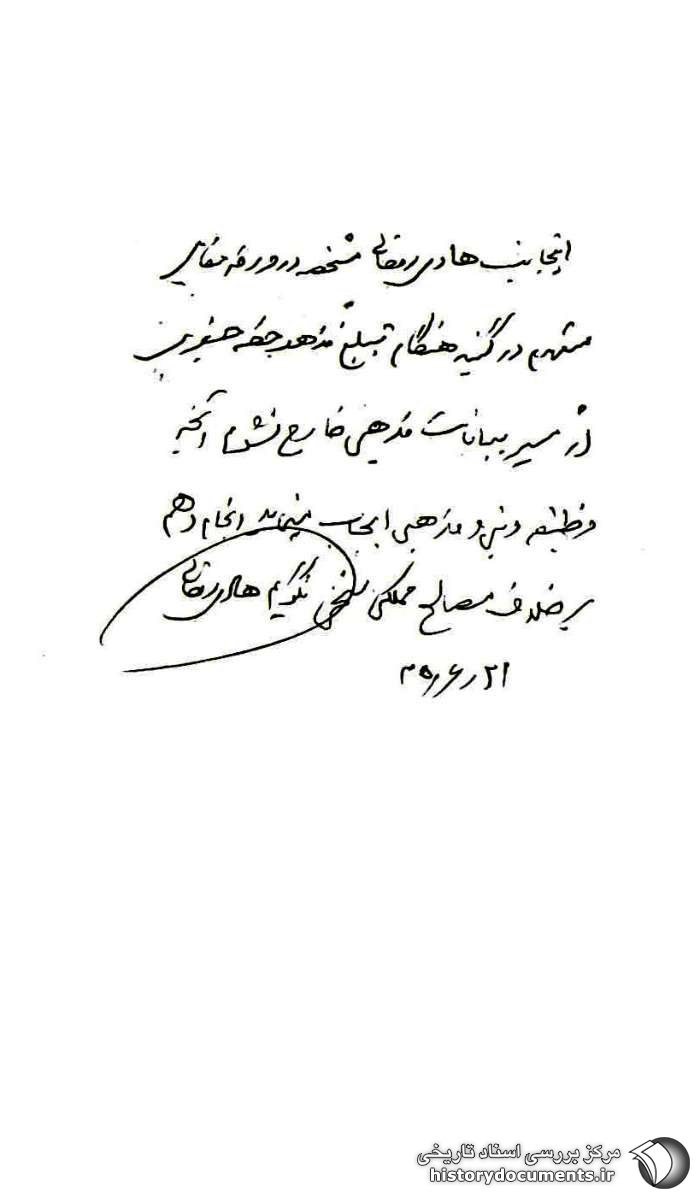 اینجانب هادی روحانی مشخصه در ورقه مقابل
متعهدم در کلیه هنگام تبلیغ مذهب حقه جعفری
از مسیر بیانات مذهبی خارج نشوم آنچه
وظیفه دینی و مذهبی ایجاب مینماید انجام دهم
برخلاف مصالح مملکتی سخنی نگویم هادی روحانی
۴۵٫۶٫۲۱
مرکز بررسی اسناد تاریخی
historydocuments.ir